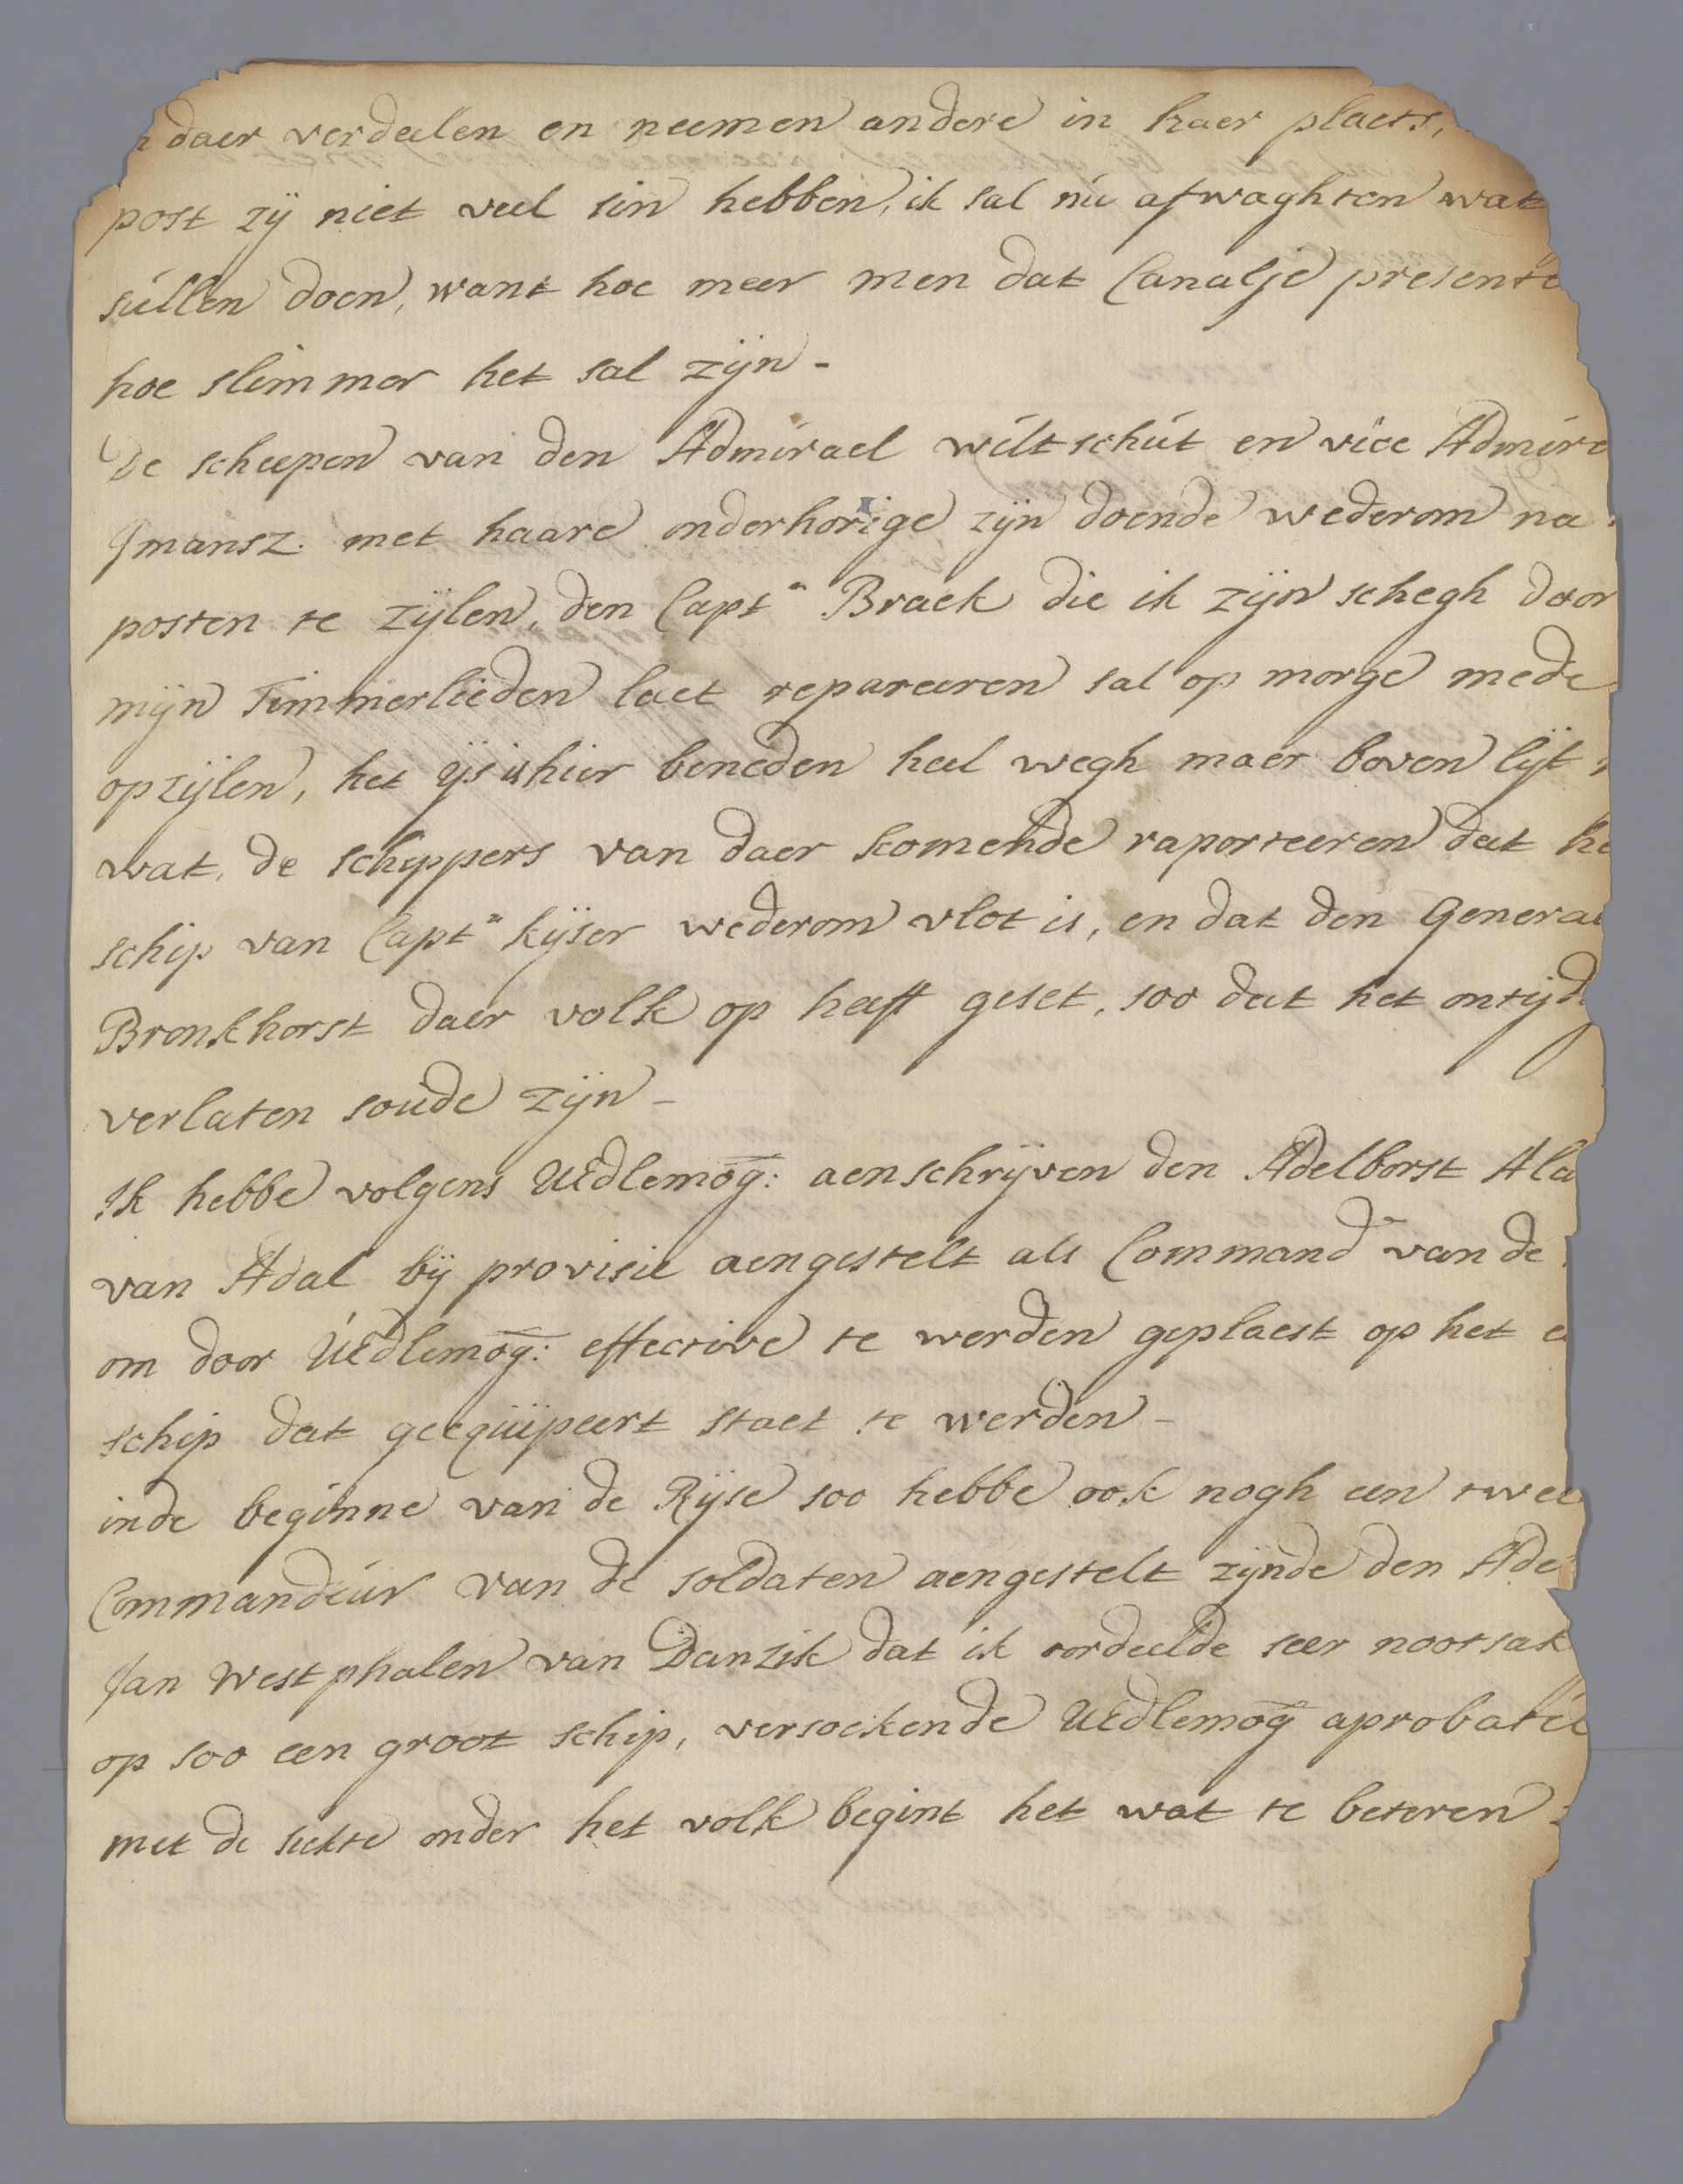 daer verdeelen en neemen andere in haer plaets,
post zÿ niet veel sin hebben, ik sal nu afwaghten wat
sullen doen, want hoe meer men dat Canalje presente
hoe slimmer het sal zÿn -
De scheepen van den Admirael wiltschut en vice Admira
Jmansz. met haare onderhorige zÿn doende wederom na
posten te zÿlen, den Captn Braek die ik zÿn schegh door
mÿn Timmerlieden laet repareeren sal op morge mede
opzÿlen, het ÿs is hier beneden heel wegh maer boven lÿt
wat, de schippers van daer komende raporteeren dat he
schip van Captn kÿser wederom vlot is, en dat den Generae
Bronkhorst daer volk op heeft geset, soo dat het ontÿd
verlaten soude zÿn -
Ik hebbe volgens UEdlemog: aenschrÿven den Adelborst Ala
van Adal bÿ provisie aengestelt als Command van de
om door UEdlemog: effective te werden geplaest op het e
schip dat geequipeert staet te werden -
inde beginne van de Rÿse soo hebbe ook nogh een twee
Commandeur van de soldaten aengestelt zÿnde den Ade
Jan Westphalen van Danzik dat ik oordeelde seer nootsak
op soo een groot schip, versoekende UEdlemog aprobatie
met de siekte onder het volk begint het wat te beteren